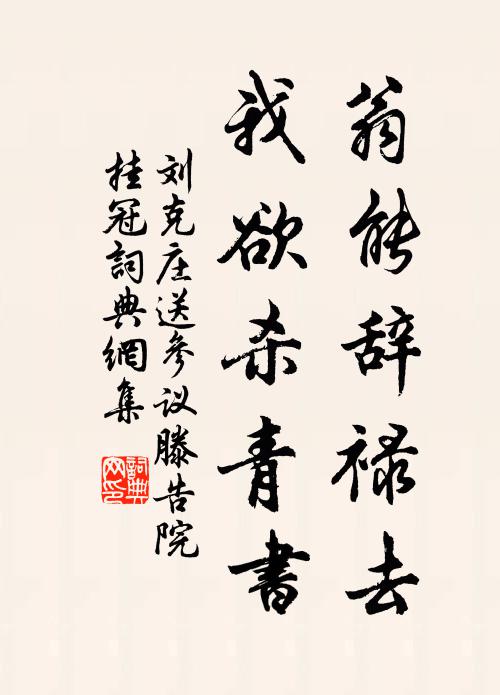 翁能辞禄去
我欲杀青書
刘克庄送参议滕告院
桂冠詞典網集
詞典網印